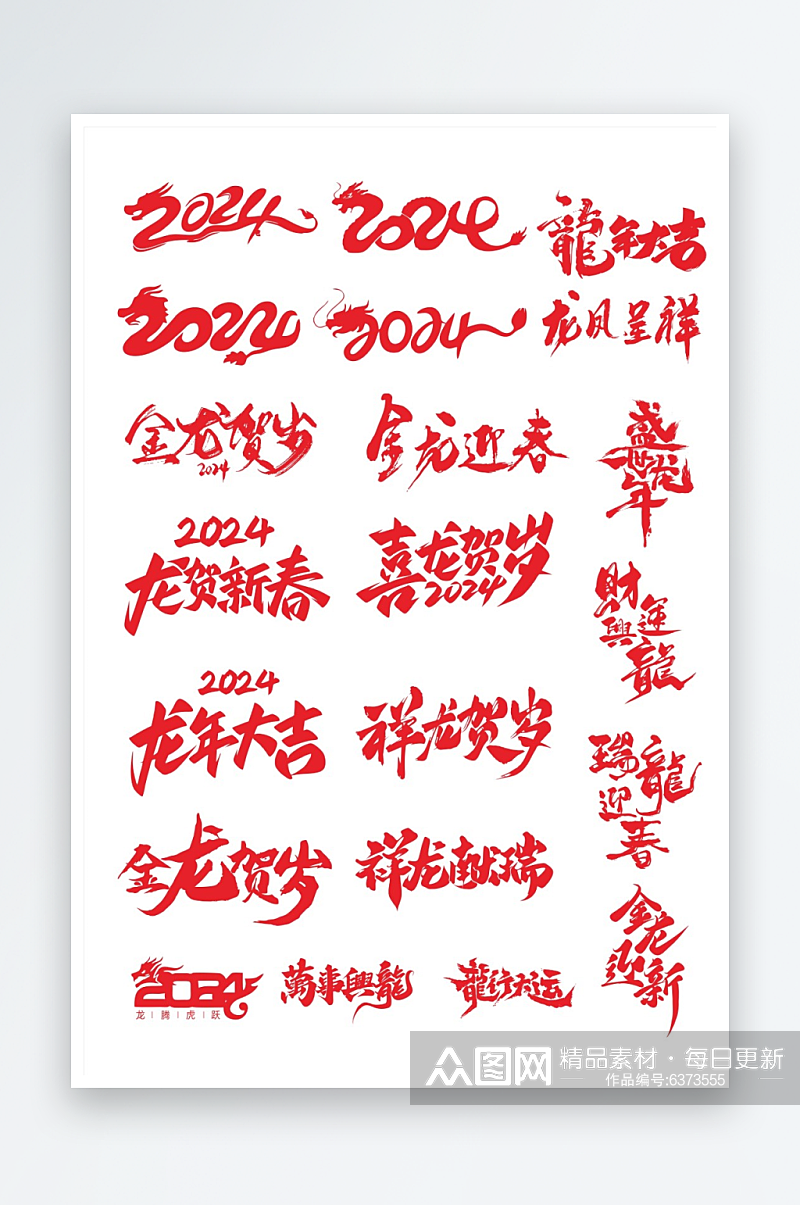 2024
2024
龍年大吉
2022
2024
龙凤呈祥
金龙贺岁
2024
金龙迎春
盛世龙年
2024
龙贺新春
喜龙贺岁
2024
財運興龍
2024
龙年大吉
祥龙贺岁
瑞龍迎春
金龙贺岁
祥龙献瑞
金龙迎新
2024
龙|腾|虎|跃
萬事興龍
龍行大运
众图网
精品素材·每日更新
作品编号:6373555